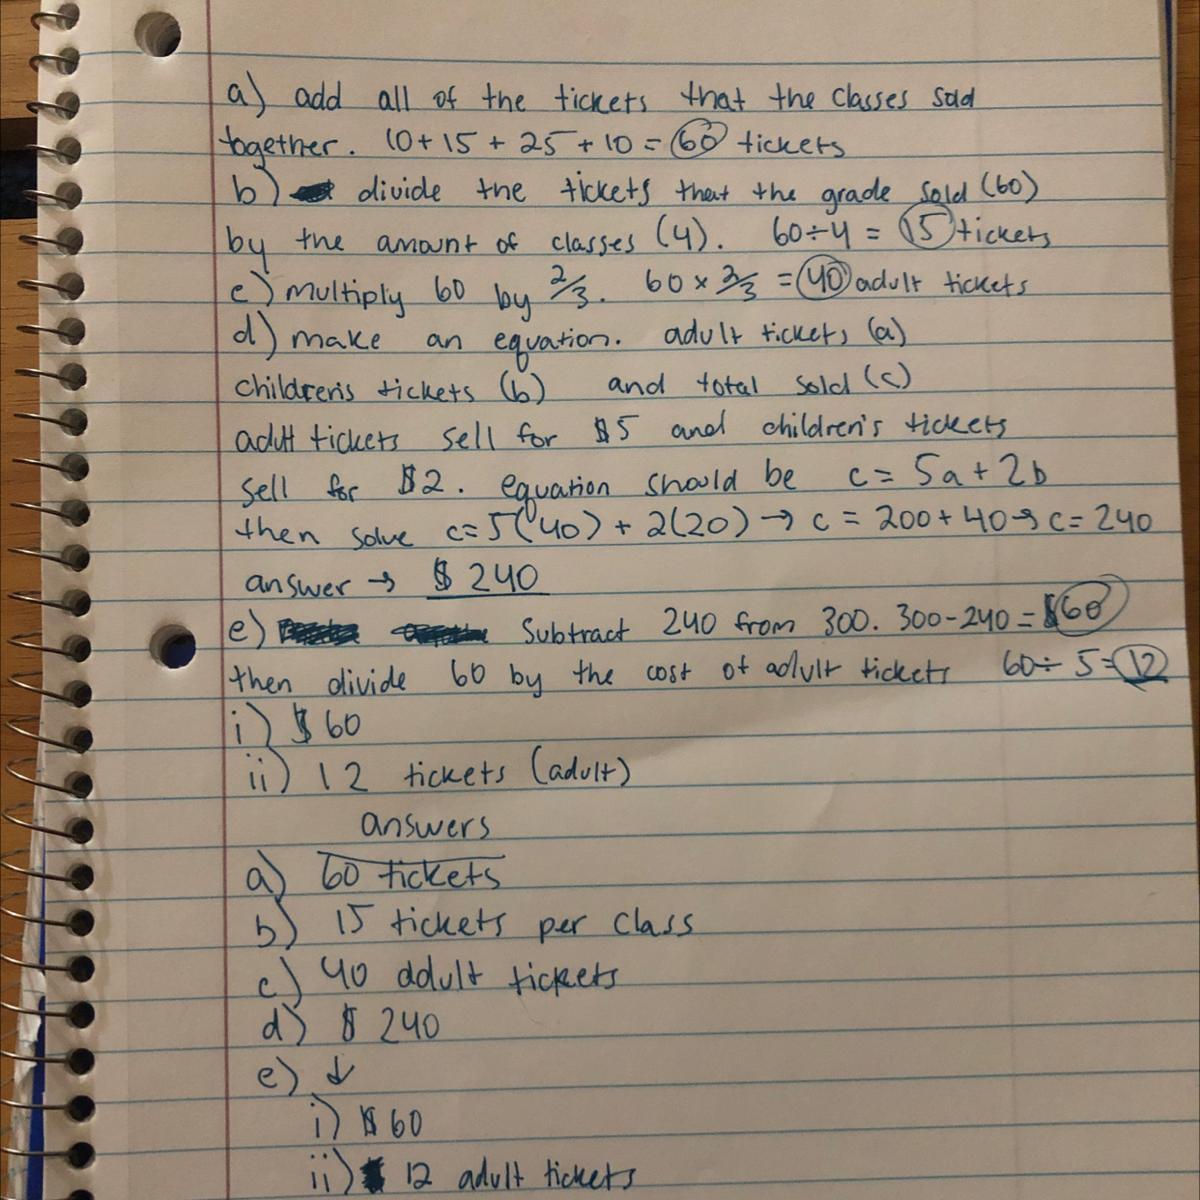 a) add all of the tickets that the classes sold
together. 10+ 15 + 25 + 10 = 60 tickets
b) divide the tickets that the grade sold (60)
by the amount of classes (4). 60÷4 = 15 tickets
c) multiply 60 by 2/3. 60 × 2/3 = 40 adult tickets
d) make an equation. adult tickets (a)
children's tickets (b) and total sold (c)
adult tickets sell for $5 and children's tickets
sell for $2. equation should be c = 5a + 2b
then solve c=5(40) + 2(20) → c = 200+40 → c= 240
answer → $ 240
e) Subtract 240 from 300. 300-240 = $60
then divide 60 by the cost of adult tickets 60÷ 5=12
i) $ 60
ii) 12 tickets (adult)
answers
a) 60 tickets
b) 15 tickets per class
c) 40 adult tickets
d) $ 240
e) ↓
i) $ 60
ii) 12 adult tickets